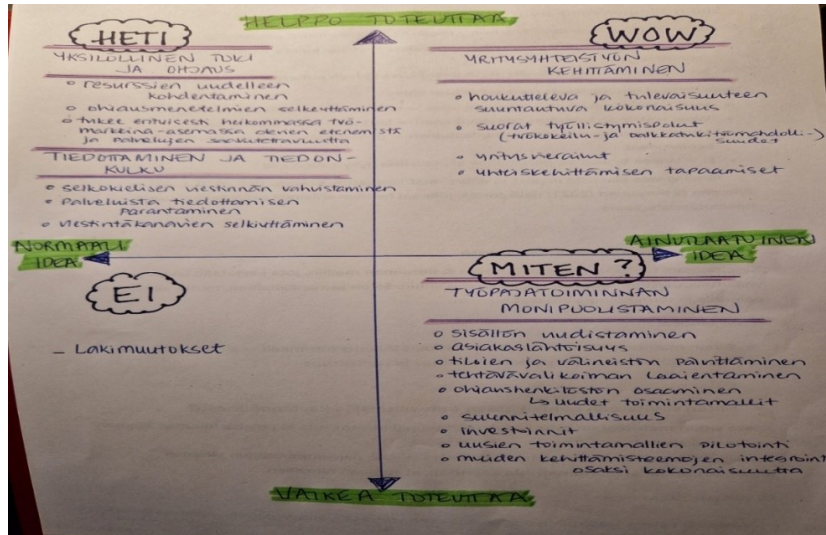 HELPPO TOTEUTTAA
HETI
YKSILÖLLINEN TUKI
JA OHJAUS
• resurssien uudelleen
kohdentaminen
• ohjausmenetelmien selkeyttäminen
• tukee erityisesti heikommassa työ-
markkina-asemassa olevien etenemistä
ja palvelujen saavutettavuutta
TIEDOTTAMINEN JA TIEDON-
KULKU
• selkokielisen viestinnän vahvistaminen
• palveluista tiedottamisen
parantaminen
• viestintäkanavien selkiyttäminen
WOW
YRITYSYHTEISTYÖN
KEHITTÄMINEN
• houkutteleva ja tulevaisuuteen
suuntautuva kokonaisuus
• suorat työllistymispolut
(työkokeilu- ja palkkatukityömahdolli-
suudet
• yritysvierailut
• yhteiskehittämisen tapaamiset
NORMAALI
IDEA
AINUTLAATUINEN
IDEA
EI
– Lakimuutokset
MITEN?
TYÖPAJATOIMINNAN
MONIPUOLISTAMINEN
• sisällön uudistaminen
• asiakaslähtöisyys
• tilojen ja välineistön päivittäminen
• tehtävävalikoiman laajentaminen
• ohjaushenkilöstön osaaminen
↳ uudet toimintamallit
• suunnitelmallisuus
• investinnit
• uusien toimintamallien pilotointi
• muiden kehittämisteemojen integrointi
osaksi kokonaisuutta
VAIKEA TOTEUTTAA